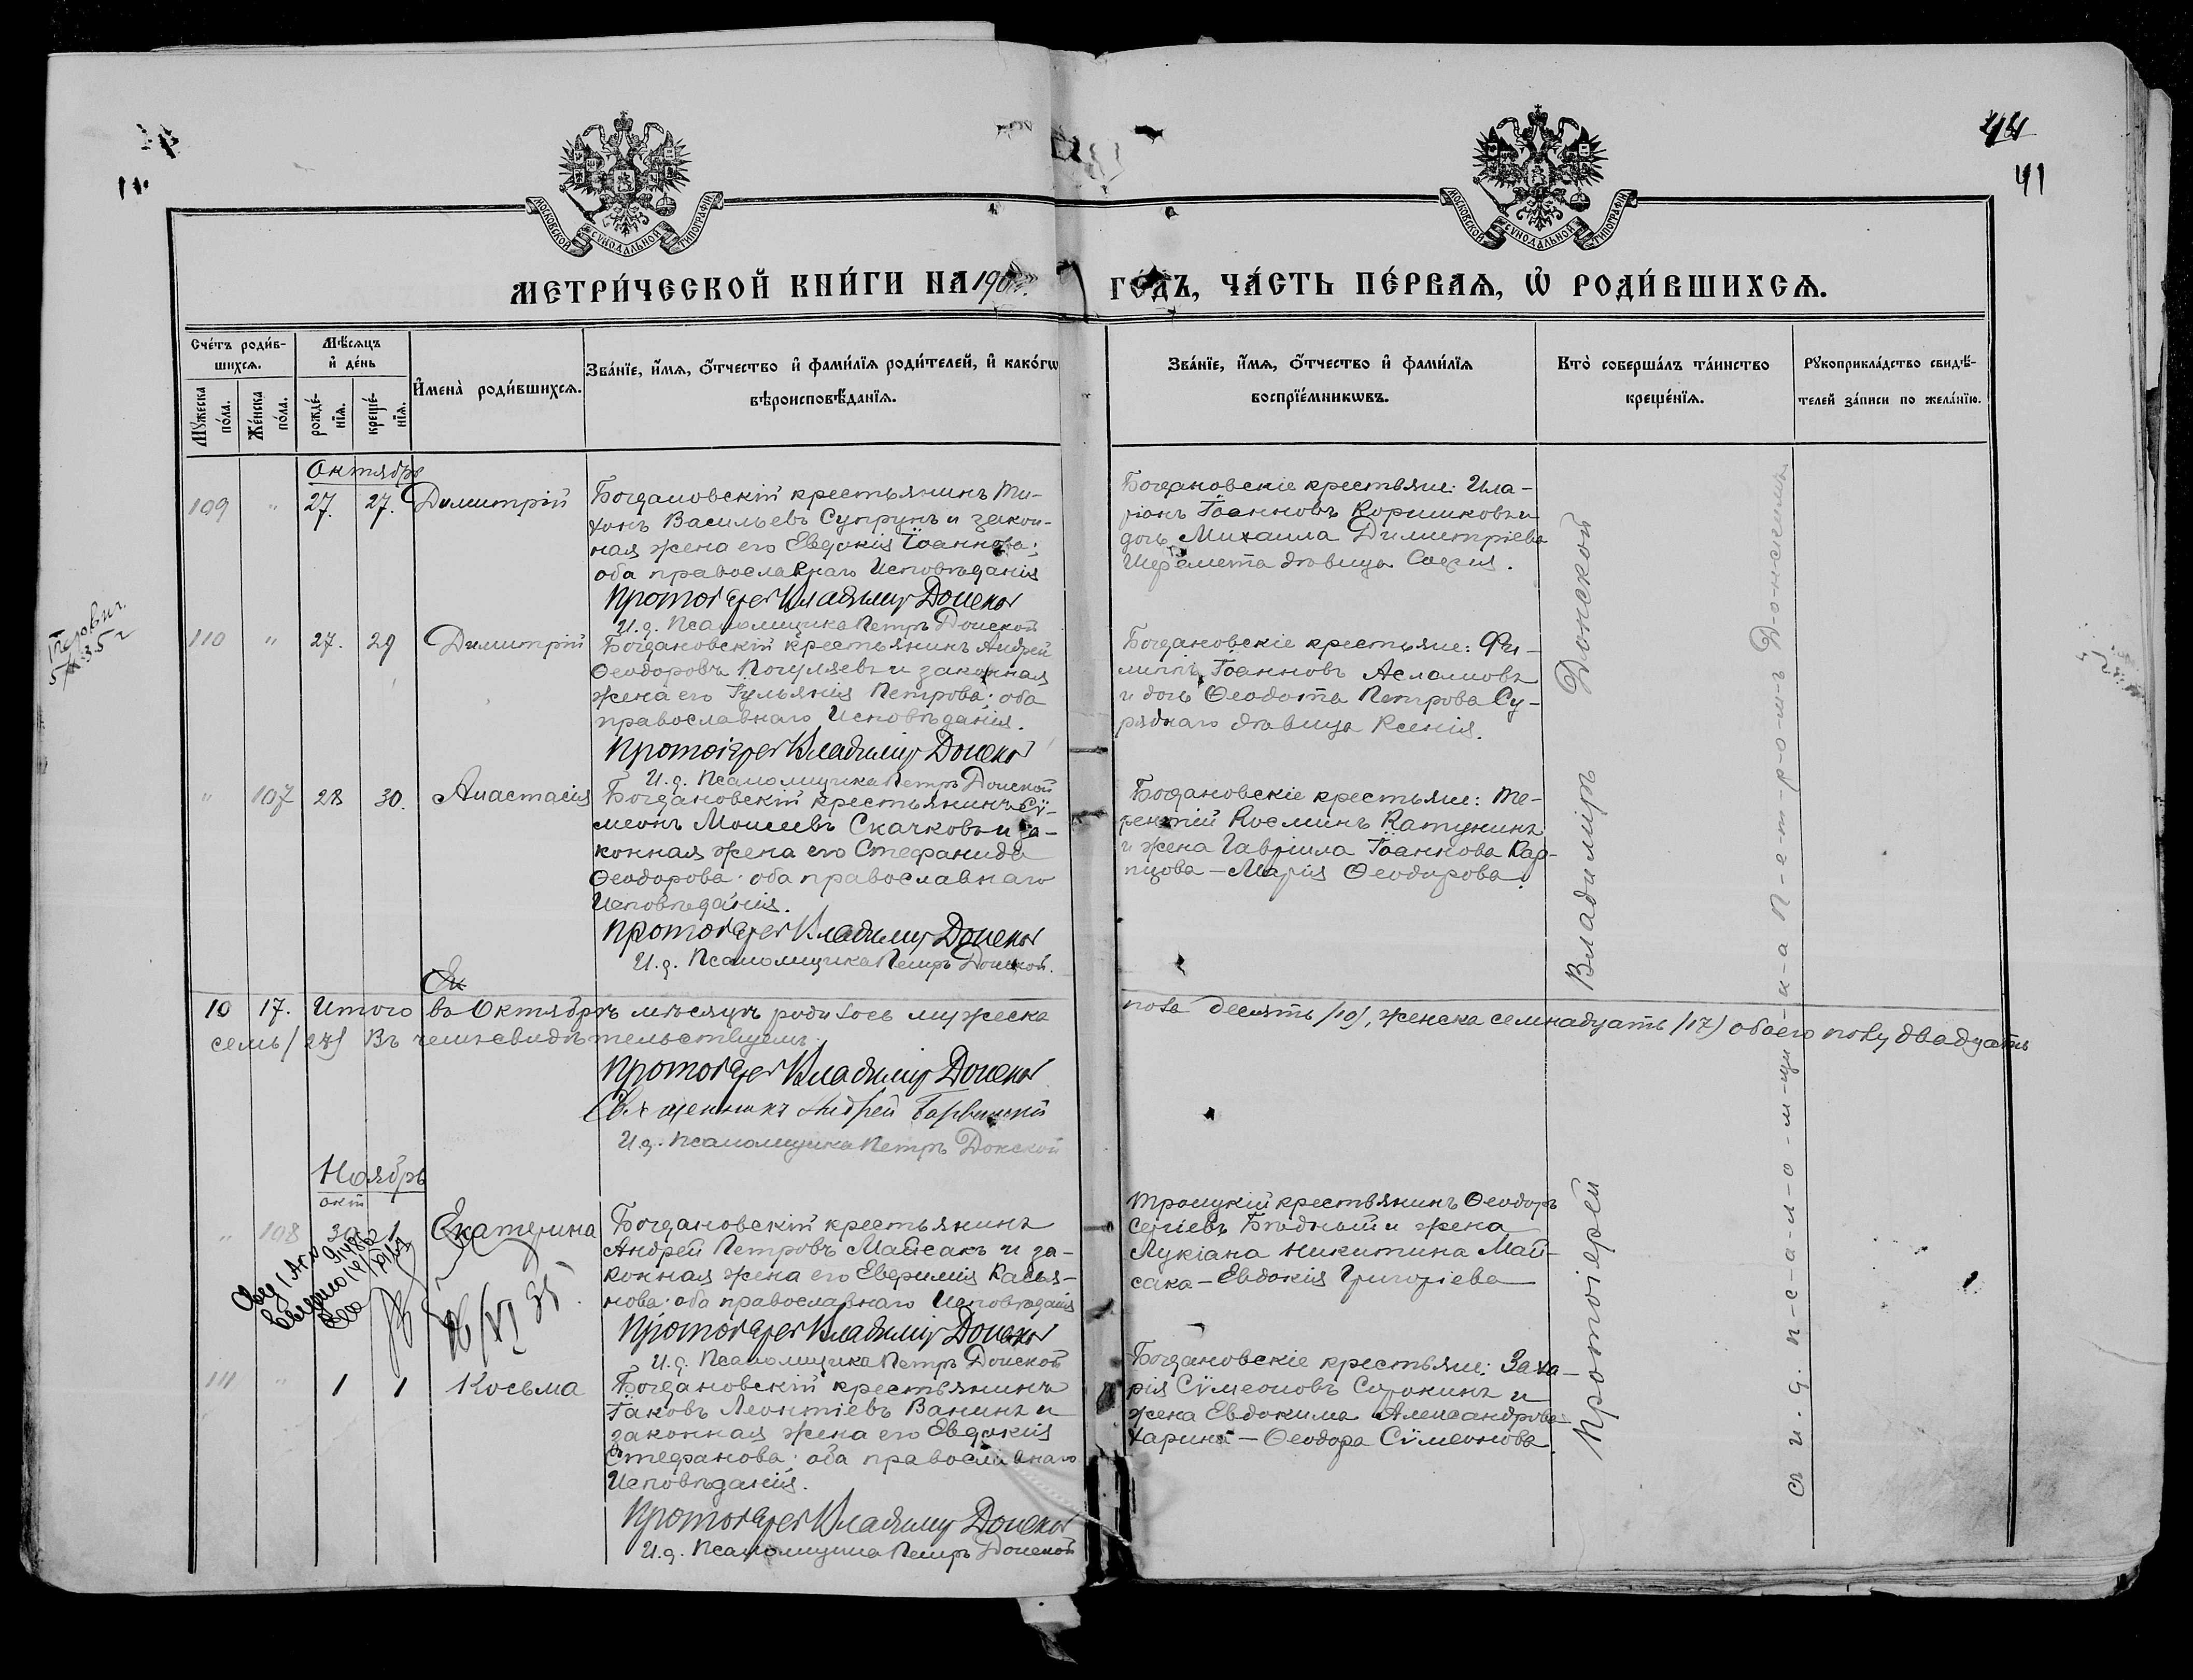 44
41
МОСКОВСКОЙ СУНОДАЛЬНОЙ ТИПОГРАФІИ
МОСКОВСКОЙ СУНОДАЛЬНОЙ ТИПОГРАФІИ
МЕТРИ́ЧЕСКОЙ КНИ́ГИ НА 190 ГО́ДЪ, ЧА́СТЬ ПЕ́РВАѦ, Ѡ РОДИ́ВШИХСѦ.
Сче́тъ роди́вшихсѧ.
Мꙋ́жеска по́ла.
Же́нска по́ла.
Мѣ́сѧцъ и де́нь
рожде́нїѧ.
креще́нїѧ.
И҆мена̀ роди́вшихсѧ.
Зва́нїе, и҆́мѧ, ѻ҆́тчество и҆ фами́лїѧ роди́телей, и҆ како́гѡ вѣроисповѣ́данїѧ.
Зва́нїе, и҆́мѧ, ѻ҆́тчество и҆ фами́лїѧ воспрїе́мникѡвъ.
Кто̀ соверша́лъ та́инство креще́нїѧ.
Рꙋкоприкла́дство свидѣ́телей за́писи по жела́нїю.
Октябрь
109 " 27. 27. Димитрій
Богдановскій крестьянинъ Ти-
хонъ Васильевъ Супрунъ и закон-
ная жена его Евдокія Іоаннова;
оба православнаго Исповѣданія
Протоіерей Владимиръ Донской
И.д. Псаломщика Петръ Донской
Богдановскіе крестьяне: Ила-
ріонъ Іоанновъ Коришковъ и
дочь Михаила Димитріева
Шеремета дѣвица Софія.
110 " 27. 29 Димитрій
Богдановскій крестьянинъ Андрей
Ѳеодоровъ Погуляевъ и законная
жена его Іульянія Петрова; оба
православнаго Исповѣданія.
Протоіерей Владимиръ Донской
И.д. Псаломщика Петръ Донской
Богдановскіе крестьяне: Фи-
липпъ Іоанновъ Асламовъ
и дочь Ѳеодота Петрова Су-
ряднаго дѣвица Ксенія.
" 107 28 30. Анастасія
Богдановскій крестьянинъ Сѵ-
меонъ Моисеевъ Скачковъ и за-
конная жена его Стефанида
Ѳеодорова; оба православнаго
Исповѣданія.
Протоіерей Владимиръ Донской
И.д. Псаломщика Петръ Донской.
Богдановскіе крестьяне: Те-
рентій Косминъ Катунинъ
и жена Гавріила Іоаннова Кар-
пцова — Марія Ѳеодорова.
10 17. Итого въ Октябрѣ мѣсяцѣ родилось мужеска пола десять /10/, женска семнадцать /17/ обоего полу двадцать
семь /27/ Въ чемъ свидѣтельствуемъ
Протоіерей Владимиръ Донской
Священникъ Андрей
И.д. Псаломщика Петръ Донской
Ноябрь
окт
" 108 30 1 Екатерина
Богдановскій крестьянинъ
Андрей Петровъ Майсакъ и за-
конная жена его Евфимія Касья-
нова; оба православнаго Исповѣданія
Протоіерей Владимиръ Донской
И.д. Псаломщика Петръ Донской
Троицкій крестьянинъ Ѳеодоръ
Сергіевъ Бѣдный и жена
Лукіана Никитина Май-
сака — Евдокія Григоріева
111 " 1 1 Косьма
Богдановскій крестьянинъ
Іаковъ Леонтіевъ Ванинъ и
законная жена его Евдокія
Стефанова; оба православнаго
Исповѣданія.
Протоіерей Владимиръ Донской
И.д. Псаломщика Петръ Донской
Богдановскіе крестьяне: Заха-
рія Сѵмеоновъ Сорокинъ и
жена Евдокима Александрова
Харина — Ѳеодора Сѵмеонова.
Протоіерей Владимиръ Донской
съ и. д. п-с-а-л-о-м-щ-и-к-а П-е-т-р-о-м-ъ Д-о-н-с-к-и-м-ъ